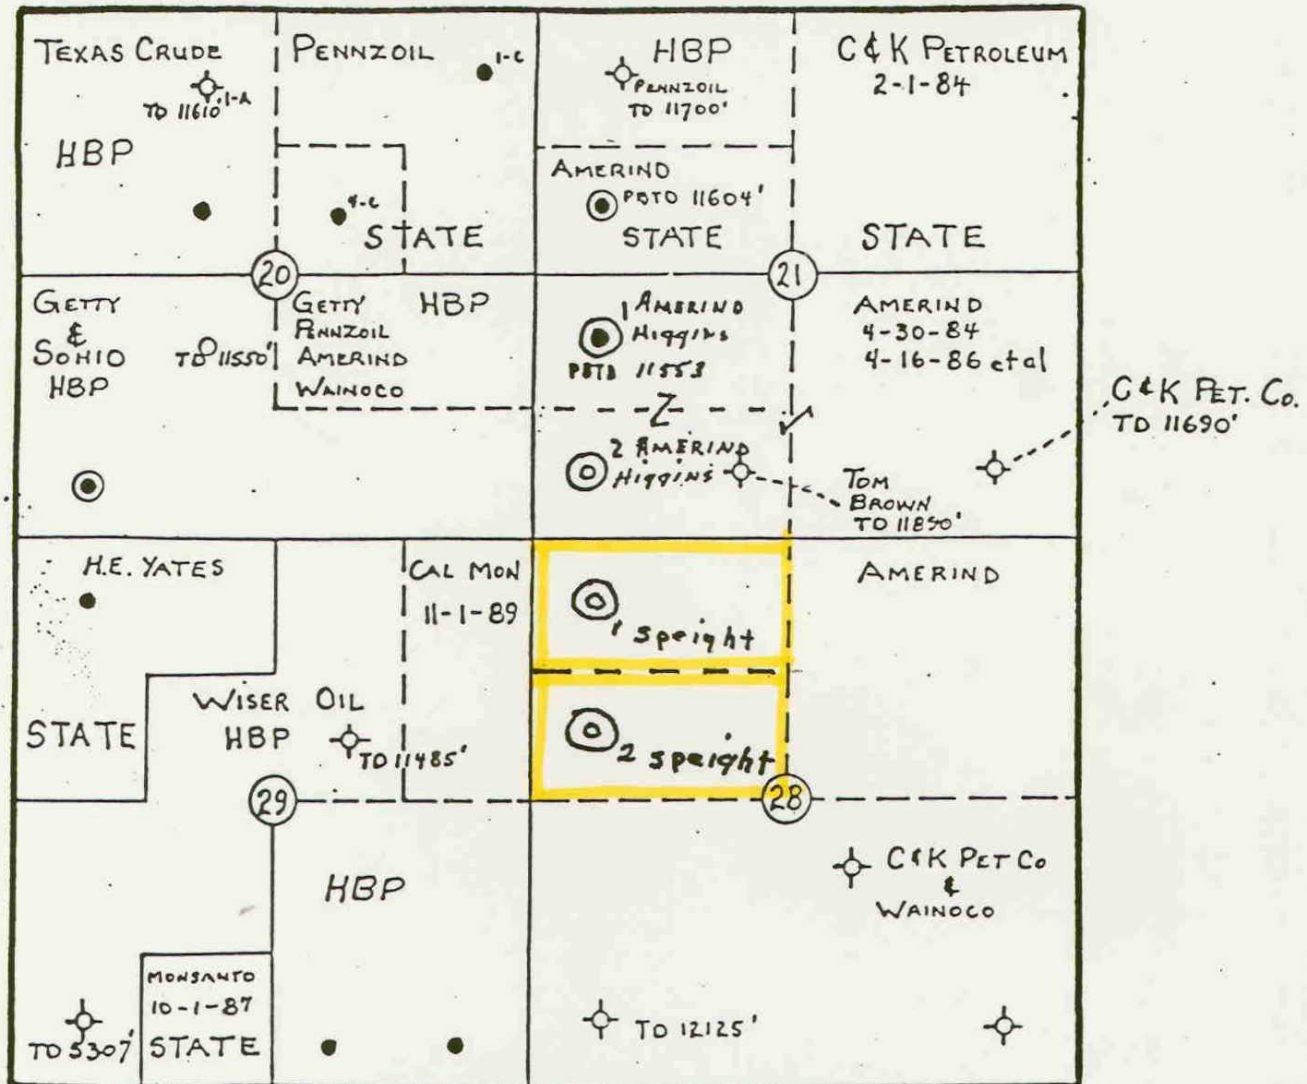 TEXAS CRUDE
1-A
TD 11610'
HBP
PENNZOIL
1-C
4-C
STATE
HBP
PENNZOIL
TO 11700'
AMERIND
PBTD 11604'
STATE
C & K PETROLEUM
2-1-84
STATE
20
21
GETTY
&
SOHIO
HBP
TD 11550'
GETTY HBP
PENNZOIL
AMERIND
WAINOCO
1 AMERIND
Higgins
PBTD 11553
Z
2 AMERIND
Higgins
AMERIND
4-30-84
4-16-86 et al
C & K PET. CO.
TD 11690'
TOM
BROWN
TO 11850'
H.E. YATES
STATE
WISER OIL
HBP
TO 11485'
CAL MON
11-1-89
1 speight
2 speight
AMERIND
29
28
HBP
MONSANTO
10-1-87
STATE
TO 5307'
C & K PET CO
&
WAINOCO
TO 12125'